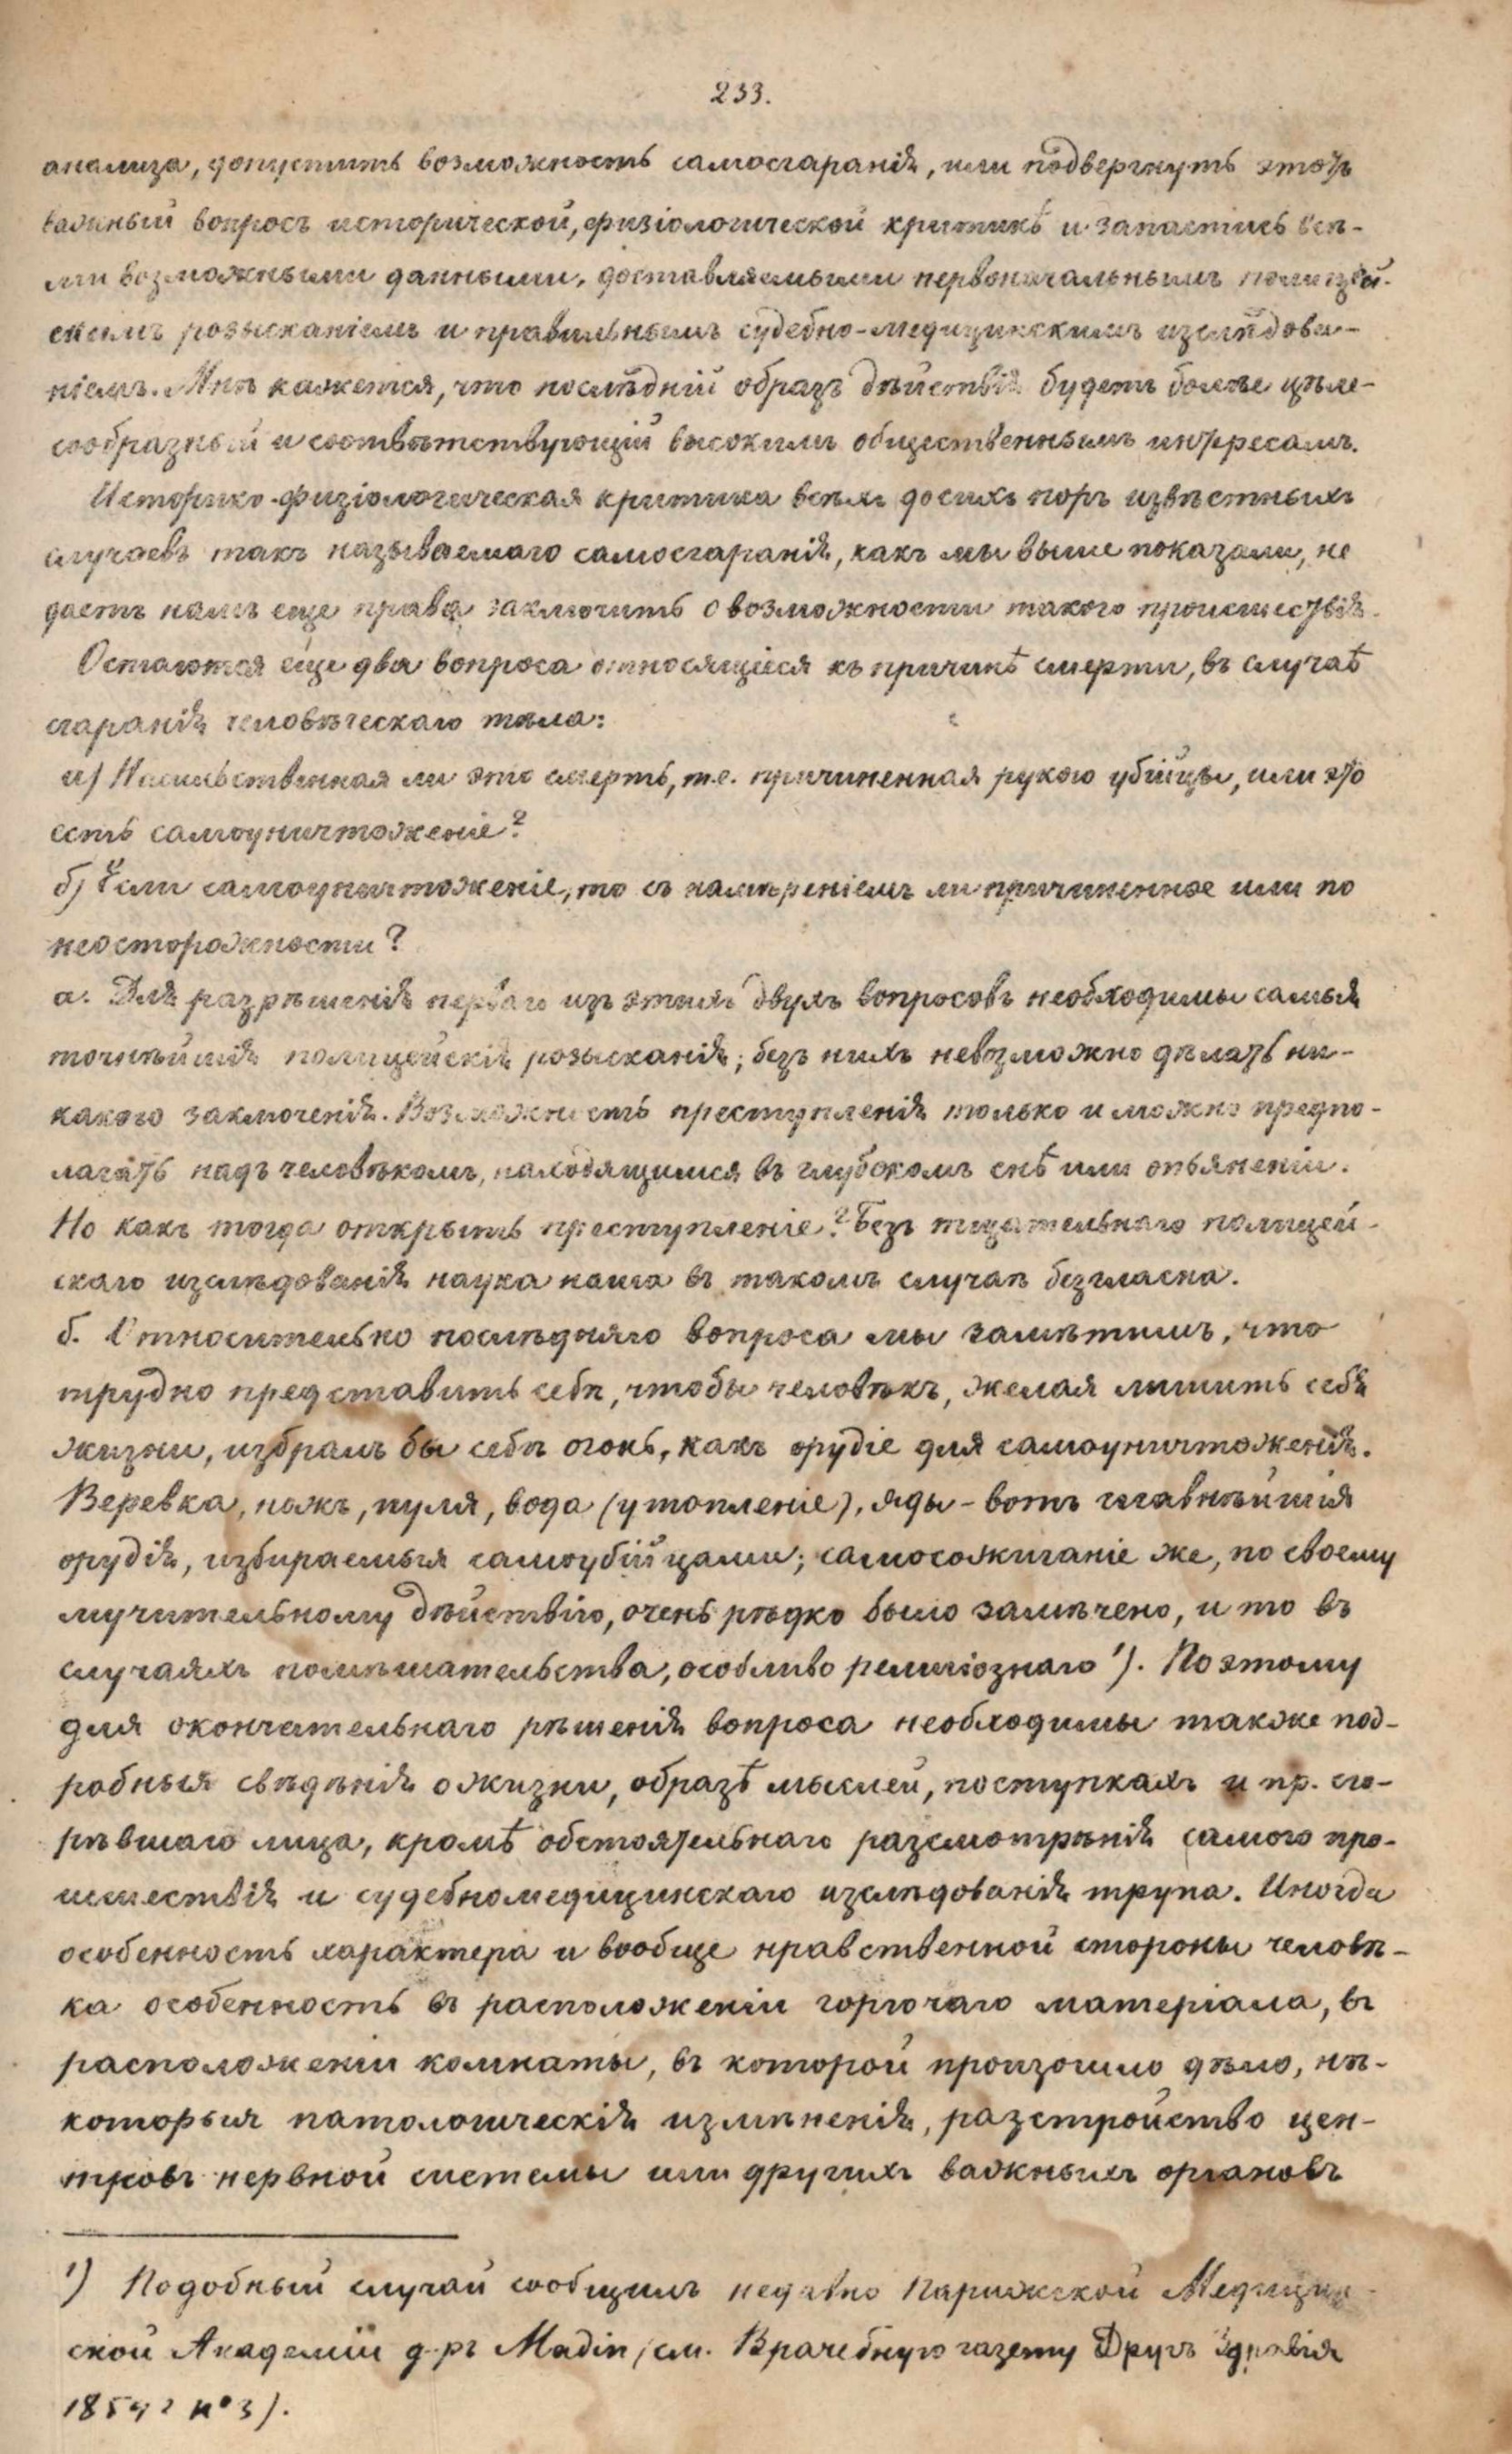 233.
анализа, допустить возможность самосгаранія, или подвергнуть этотъ
важный вопросъ исторической, физіологической критикѣ и запастись всѣ-
ми возможными данными, доставляемыми первоначальнымъ полицей-
скимъ розысканіемъ и правильнымъ судебно-медицинскимъ изслѣдова-
ніемъ. Мнѣ кажется, что послѣдній образъ дѣйствія будетъ болѣе цѣле-
сообразный и соотвѣтствующій высокимъ общественнымъ интересамъ.
Историко-физіологическая критика всѣхъ досихъ поръ извѣстныхъ
случаевъ такъ называемаго самосгаранія, какъ мы выше показали, не
даетъ намъ еще права заключить о возможности такого происшествія.
Остаются еще два вопроса относящіеся къ причинѣ смерти, въ случаѣ
сгаранія человѣческаго тѣла:
а) Насильственная ли это смерть, т.е. причиненная рукою убійцы, или это
есть самоуничтоженіе?
б) Если самоуничтоженіе, то съ намѣреніемъ ли причиненное или по
неосторожности?
а. Для разрѣшенія перваго изъ этихъ двухъ вопросовъ необходимы самыя
точнѣйшія полицейскія розысканія; безъ нихъ невозможно дѣлать ни-
какого заключенія. Возможность преступленія только и можно предпо-
лагать надъ человѣкомъ, находящимся въ глубокомъ снѣ или опьяненіи.
Но какъ тогда открыть преступленіе? Безъ тщательнаго полицей-
скаго изслѣдованія наука наша въ такомъ случаѣ безгласна.
б. Относительно послѣдняго вопроса мы замѣтимъ, что
трудно представить себѣ, чтобы человѣкъ, желая лишить себя
жизни, избралъ бы себѣ огонь, какъ орудіе для самоуничтоженія.
Веревка, ножъ, пуля, вода (утопленіе), яды - вотъ главнѣйшія
орудія, избираемыя самоубійцами; самосожиганіе же, по своему
мучительному дѣйствію, очень рѣдко было замѣчено, и то въ
случаяхъ помѣшательства, особливо религіознаго ¹). Поэтому
для окончательнаго рѣшенія вопроса необходимы также под-
робныя свѣдѣнія о жизни, образѣ мыслей, поступкахъ и пр. сго-
рѣвшаго лица, кромѣ обстоятельнаго разсмотрѣнія самого про-
ишествія и судебномедицинскаго изслѣдованія трупа. Иногда
особенность характера и вообще нравственной стороны человѣ-
ка особенность въ расположеніи горючаго матеріала, въ
расположеніи комнаты, въ которой произошло дѣло, нѣ-
которыя патологическія измѣненія, разстройство цен-
тровъ нервной системы или другихъ важныхъ органовъ
¹) Подобный случай сообщилъ недавно Парижской Медицин-
ской Академіи д-ръ Madin (см. Врачебную газету Другъ Здравія
1854 г №3).